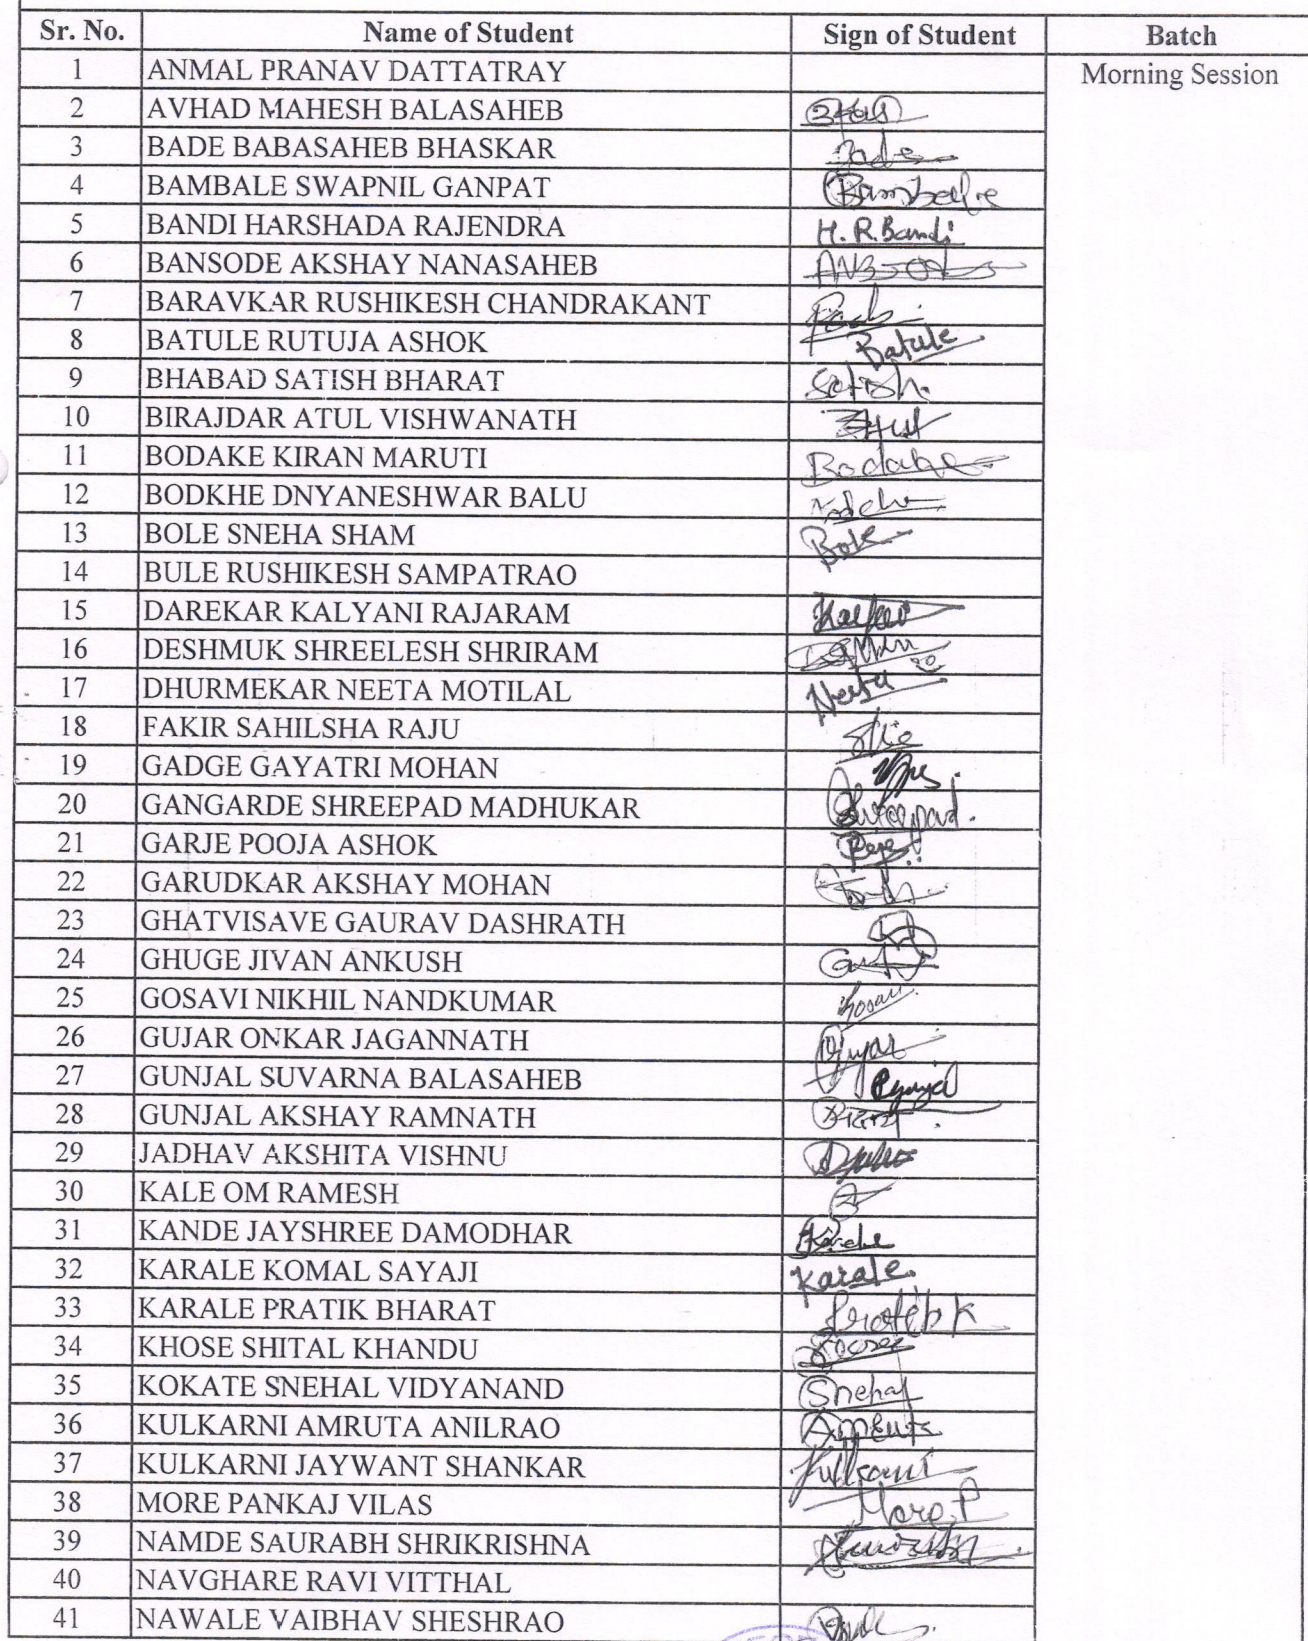 Sr. No. Name of Student Sign of Student Batch
1 ANMAL PRANAV DATTATRAY Morning Session
2 AVHAD MAHESH BALASAHEB
3 BADE BABASAHEB BHASKAR
4 BAMBALE SWAPNIL GANPAT Bambale
5 BANDI HARSHADA RAJENDRA H.R.Bandi
6 BANSODE AKSHAY NANASAHEB
7 BARAVKAR RUSHIKESH CHANDRAKANT
8 BATULE RUTUJA ASHOK Batule
9 BHABAD SATISH BHARAT Satish
10 BIRAJDAR ATUL VISHWANATH
11 BODAKE KIRAN MARUTI Bodake
12 BODKHE DNYANESHWAR BALU
13 BOLE SNEHA SHAM Bole
14 BULE RUSHIKESH SAMPATRAO
15 DAREKAR KALYANI RAJARAM
16 DESHMUK SHREELESH SHRIRAM
17 DHURMEKAR NEETA MOTILAL Neeta
18 FAKIR SAHILSHA RAJU
19 GADGE GAYATRI MOHAN
20 GANGARDE SHREEPAD MADHUKAR Shreepad.
21 GARJE POOJA ASHOK
22 GARUDKAR AKSHAY MOHAN
23 GHATVISAVE GAURAV DASHRATH
24 GHUGE JIVAN ANKUSH
25 GOSAVI NIKHIL NANDKUMAR
26 GUJAR ONKAR JAGANNATH Gujar
27 GUNJAL SUVARNA BALASAHEB
28 GUNJAL AKSHAY RAMNATH
29 JADHAV AKSHITA VISHNU
30 KALE OM RAMESH
31 KANDE JAYSHREE DAMODHAR Kande
32 KARALE KOMAL SAYAJI Karale
33 KARALE PRATIK BHARAT Pratik K
34 KHOSE SHITAL KHANDU
35 KOKATE SNEHAL VIDYANAND Snehal
36 KULKARNI AMRUTA ANILRAO
37 KULKARNI JAYWANT SHANKAR Kulkarni
38 MORE PANKAJ VILAS More.P
39 NAMDE SAURABH SHRIKRISHNA
40 NAVGHARE RAVI VITTHAL
41 NAWALE VAIBHAV SHESHRAO